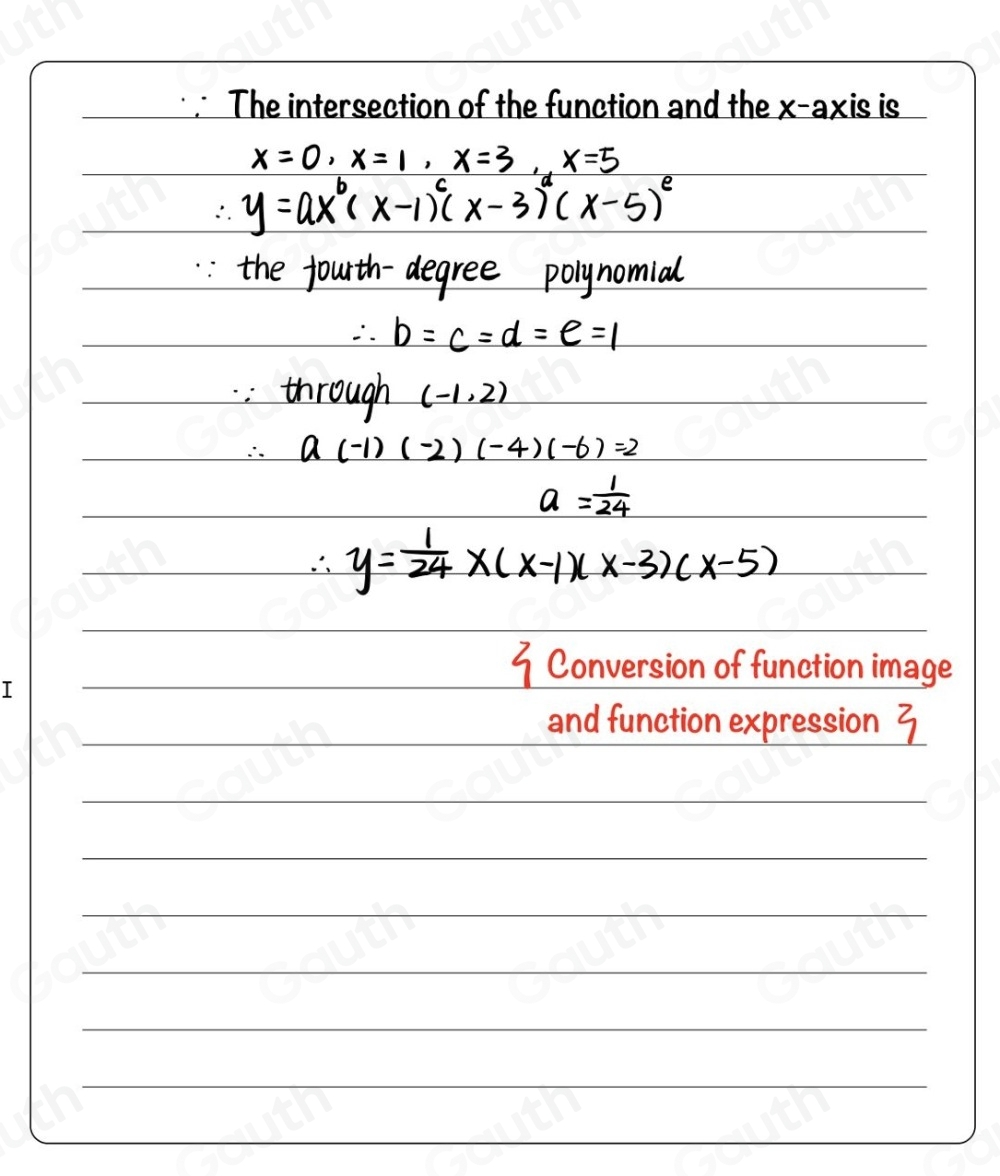 ∵ The intersection of the function and the x-axis is
x=0, x=1, x=3, x=5
∴ y=ax^b(x-1)^c(x-3)^d(x-5)^e
∵ the fourth-degree polynomial
∴ b=c=d=e=1
∵ through (-1,2)
∴ a(-1)(-2)(-4)(-6)=2
a=1/24
∴ y=1/24 x(x-1)(x-3)(x-5)
Conversion of function image
and function expression
I
Gauth